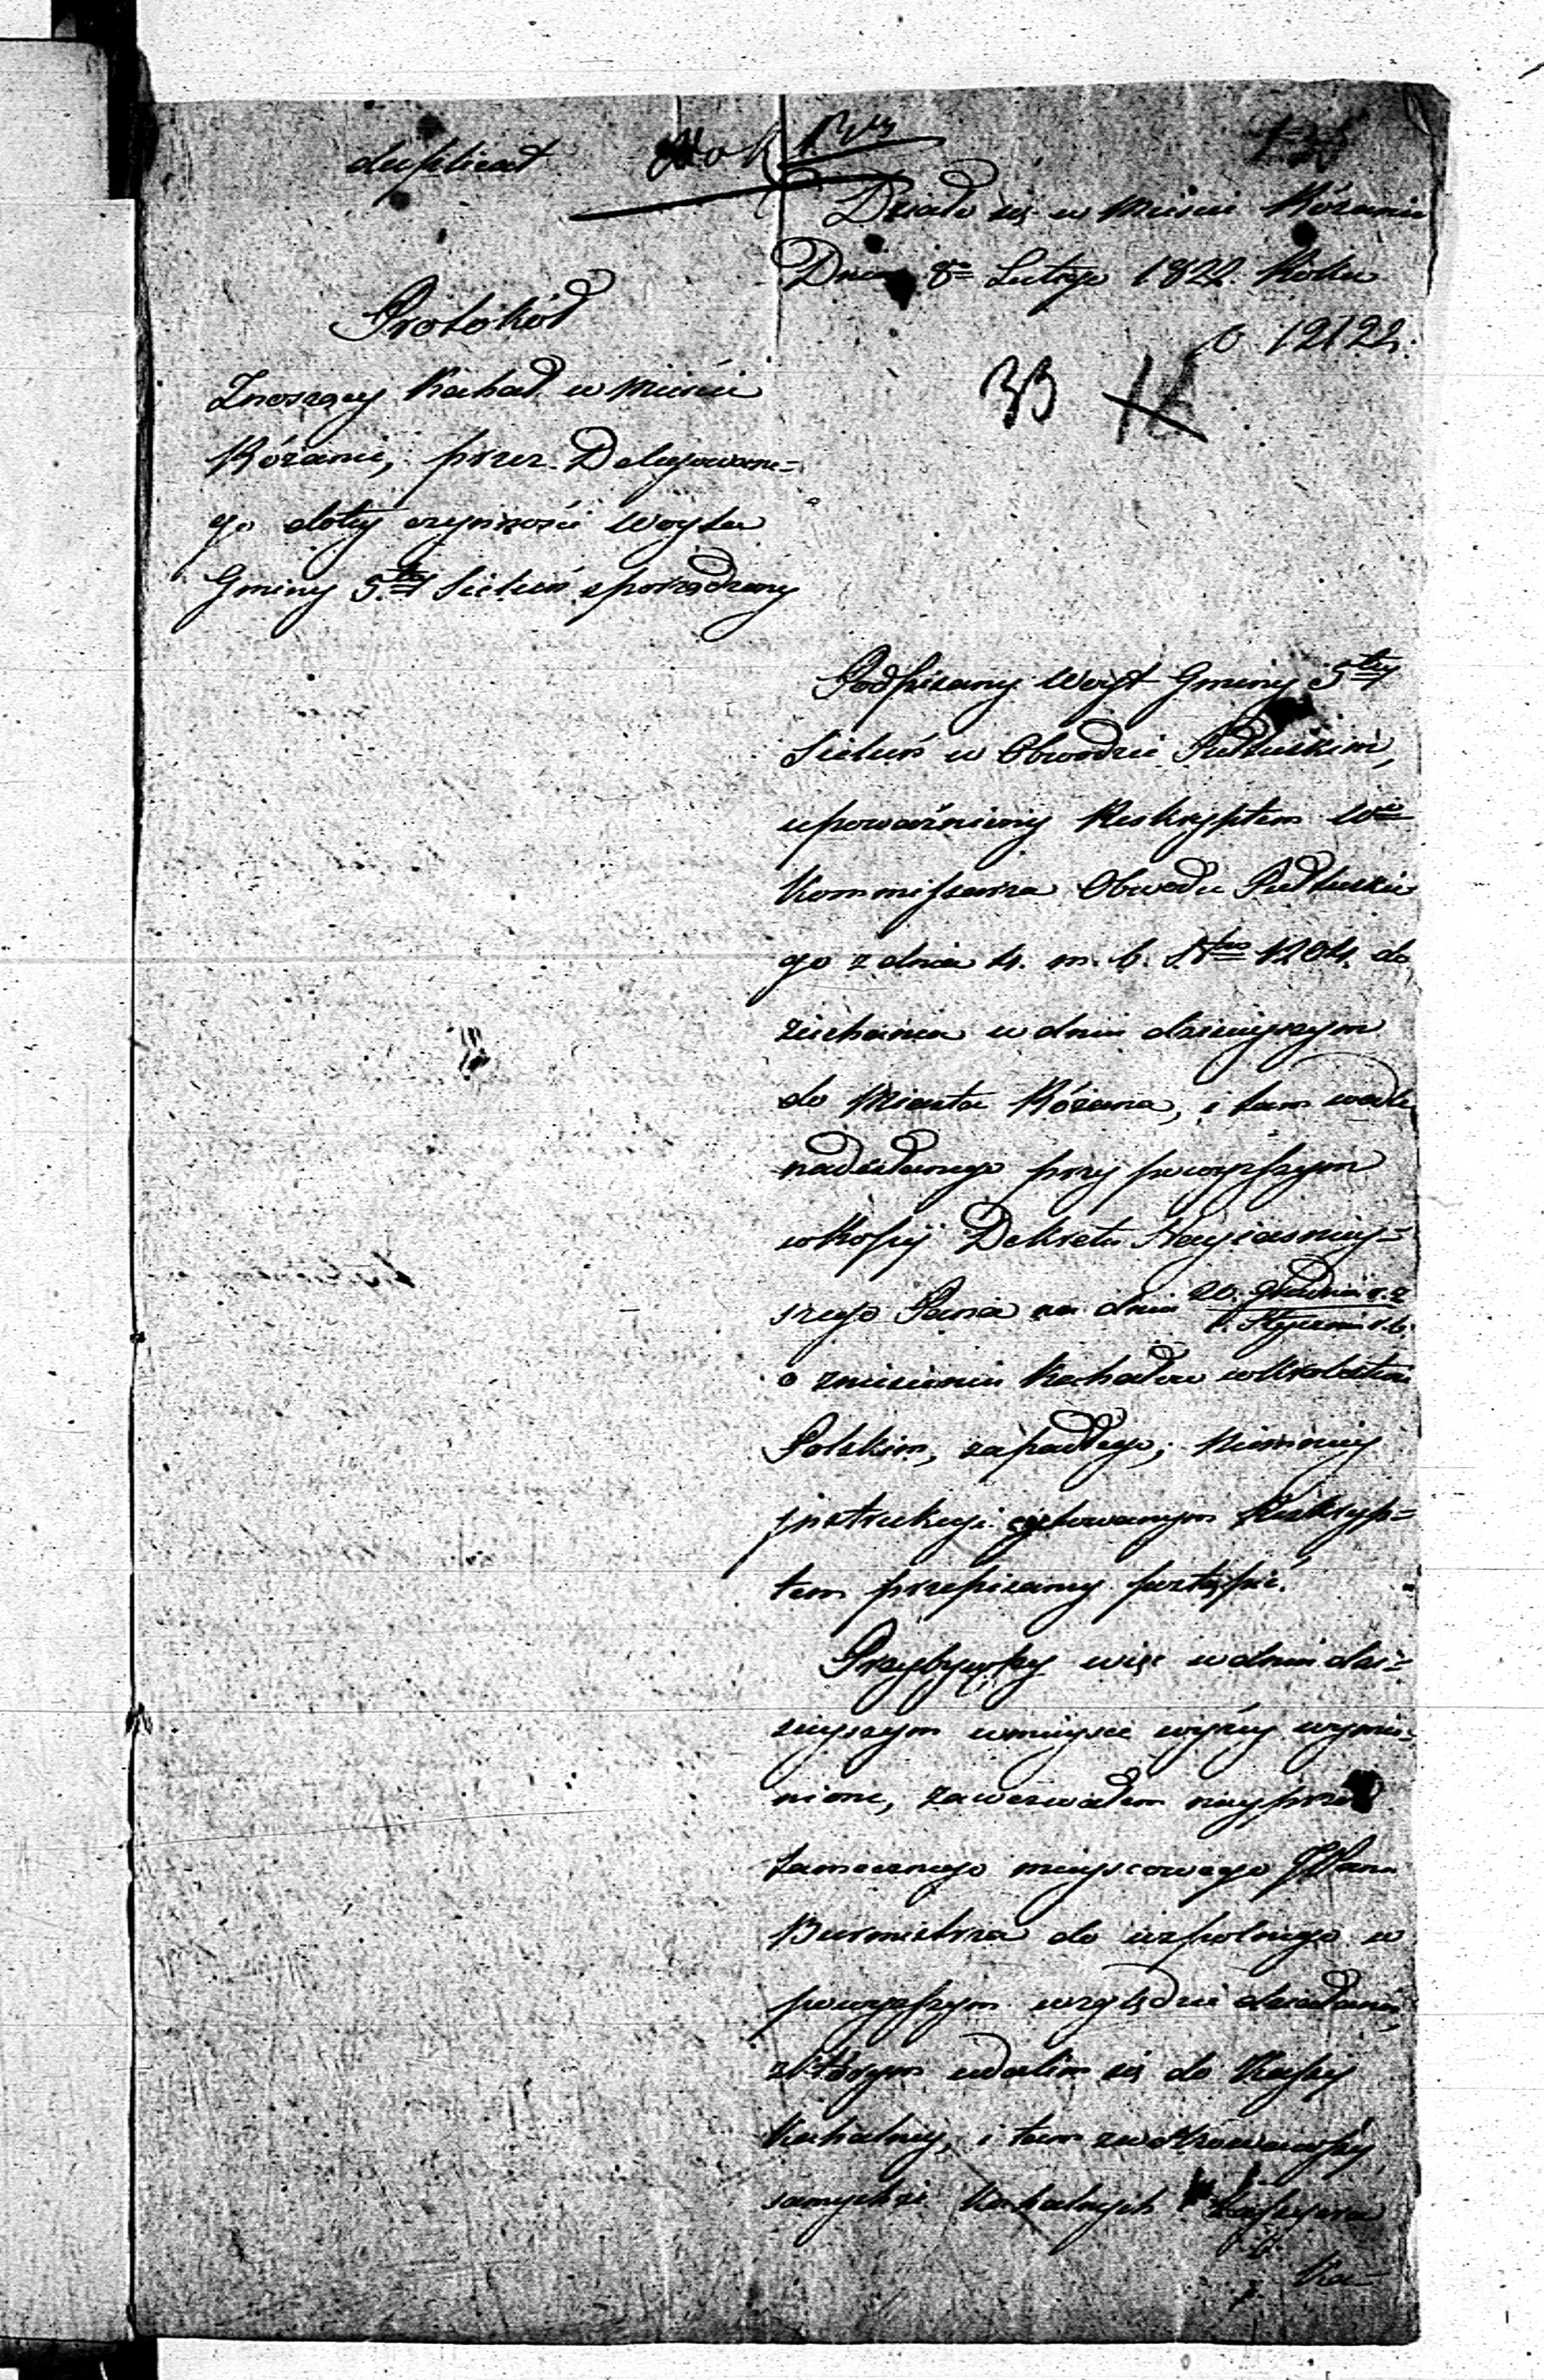 duplicat
Działo się w Mieście Różanie
Dnia 8º Lutego 1822. Roku
12122.
33 18
Protokół
Znoszący Kahał w Mieście
Różanie, przez Delegowane=
go do tey czynności Woyta
Gminy 5tey Sieluń sporządzony
Podpisany Woyt Gminy 5tey
Sieluń w Obwodzie Pułtuskim,
upoważniony Reskryptem Wo
Kommissarza Obwodu Pułtuskie
go z dnia 4. m. b. 1204. do
ziechania w dniu dzisieyszym
do Miasta Różana, i tam wedle
nadesłanego przy powyższym
w Kopij Dekretu Nayiaśniey=
szego Pana na dniu 20. Grudnia r. z. / 1. Stycznia r. b.
o zniesieniu Kahałow w Krolestwie
Polskim, zapadłego; niemniey
jnstrukcyi cytowanym Reskryp=
tem przepisaney postąpić.
Przybywszy więc w dniu dzi=
sieyszym w mieysce wyżey wymie=
nione, zawezwałem nayprzód
tamecznego mieyscowego JPana
Burmistrza do wspolnego w
powyższym względzie działania,
z którym udałem się do Kassy
Kahalney, i tam
samychże Kahalnych Kassyera
Ka=